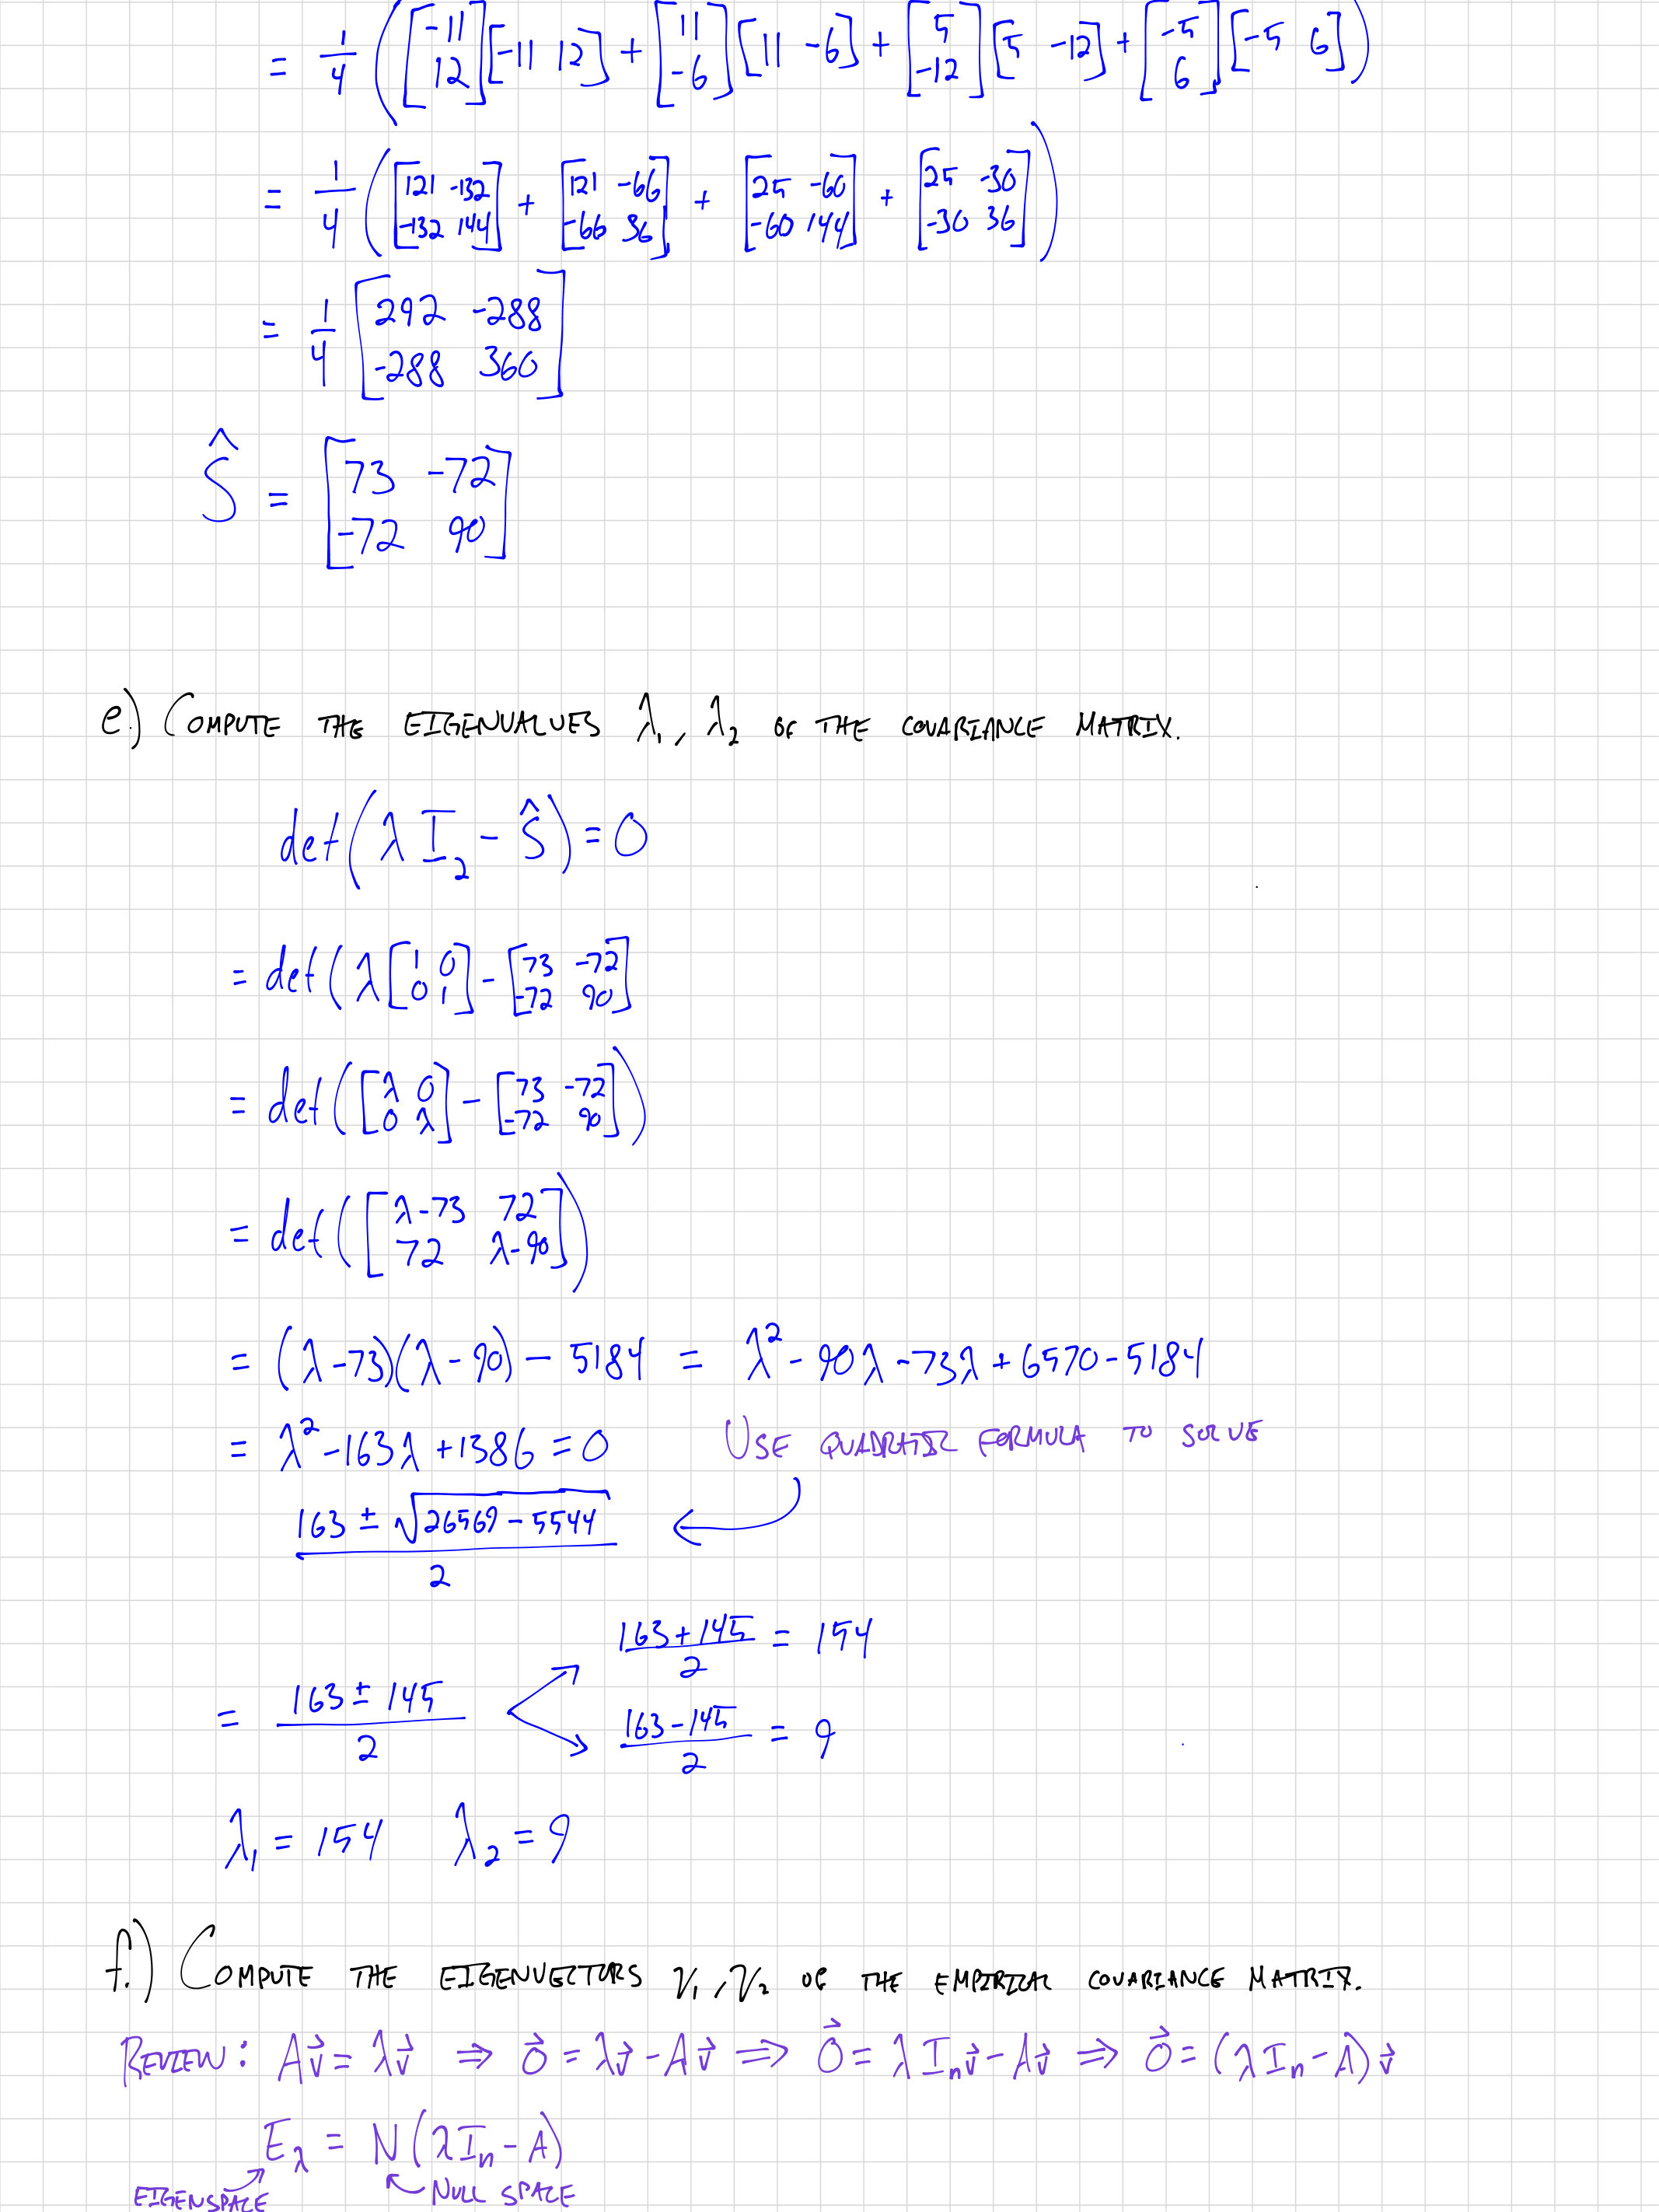 = 1/4 ( [-11 12] [-11 12] + [11 -6] [11 -6] + [5 -12] [5 -12] + [-5 6] [-5 6] )
= 1/4 ( [121 -132 -132 144] + [121 -66 -66 36] + [25 -60 -60 144] + [25 -30 -30 36] )
= 1/4 [292 -288 -288 360]
Ŝ = [73 -72 -72 90]
e.) COMPUTE THE EIGENVALUES λ₁, λ₂ OF THE COVARIANCE MATRIX.
det(λ I₂ - Ŝ) = 0
= det( λ [1 0 0 1] - [73 -72 -72 90]
= det( [λ 0 0 λ] - [73 -72 -72 90] )
= det( [λ-73 72 72 λ-90] )
= (λ-73)(λ-90) - 5184 = λ² - 90λ - 73λ + 6570 - 5184
= λ² - 163λ + 1386 = 0 USE QUADRATIC FORMULA TO SOLVE
163 ± √26569 - 5544 / 2
163+145 / 2 = 154
= 163 ± 145 / 2
163-145 / 2 = 9
λ₁ = 154 λ₂ = 9
f.) COMPUTE THE EIGENVECTORS V₁, V₂ OF THE EMPIRICAL COVARIANCE MATRIX.
REVIEW: Av⃗ = λv⃗ ⇒ 0⃗ = λv⃗ - Av⃗ ⇒ 0⃗ = λIₙv⃗ - Av⃗ ⇒ 0⃗ = (λIₙ - A)v⃗
E_λ = N(λIₙ - A)
EIGENSPACE NULL SPACE